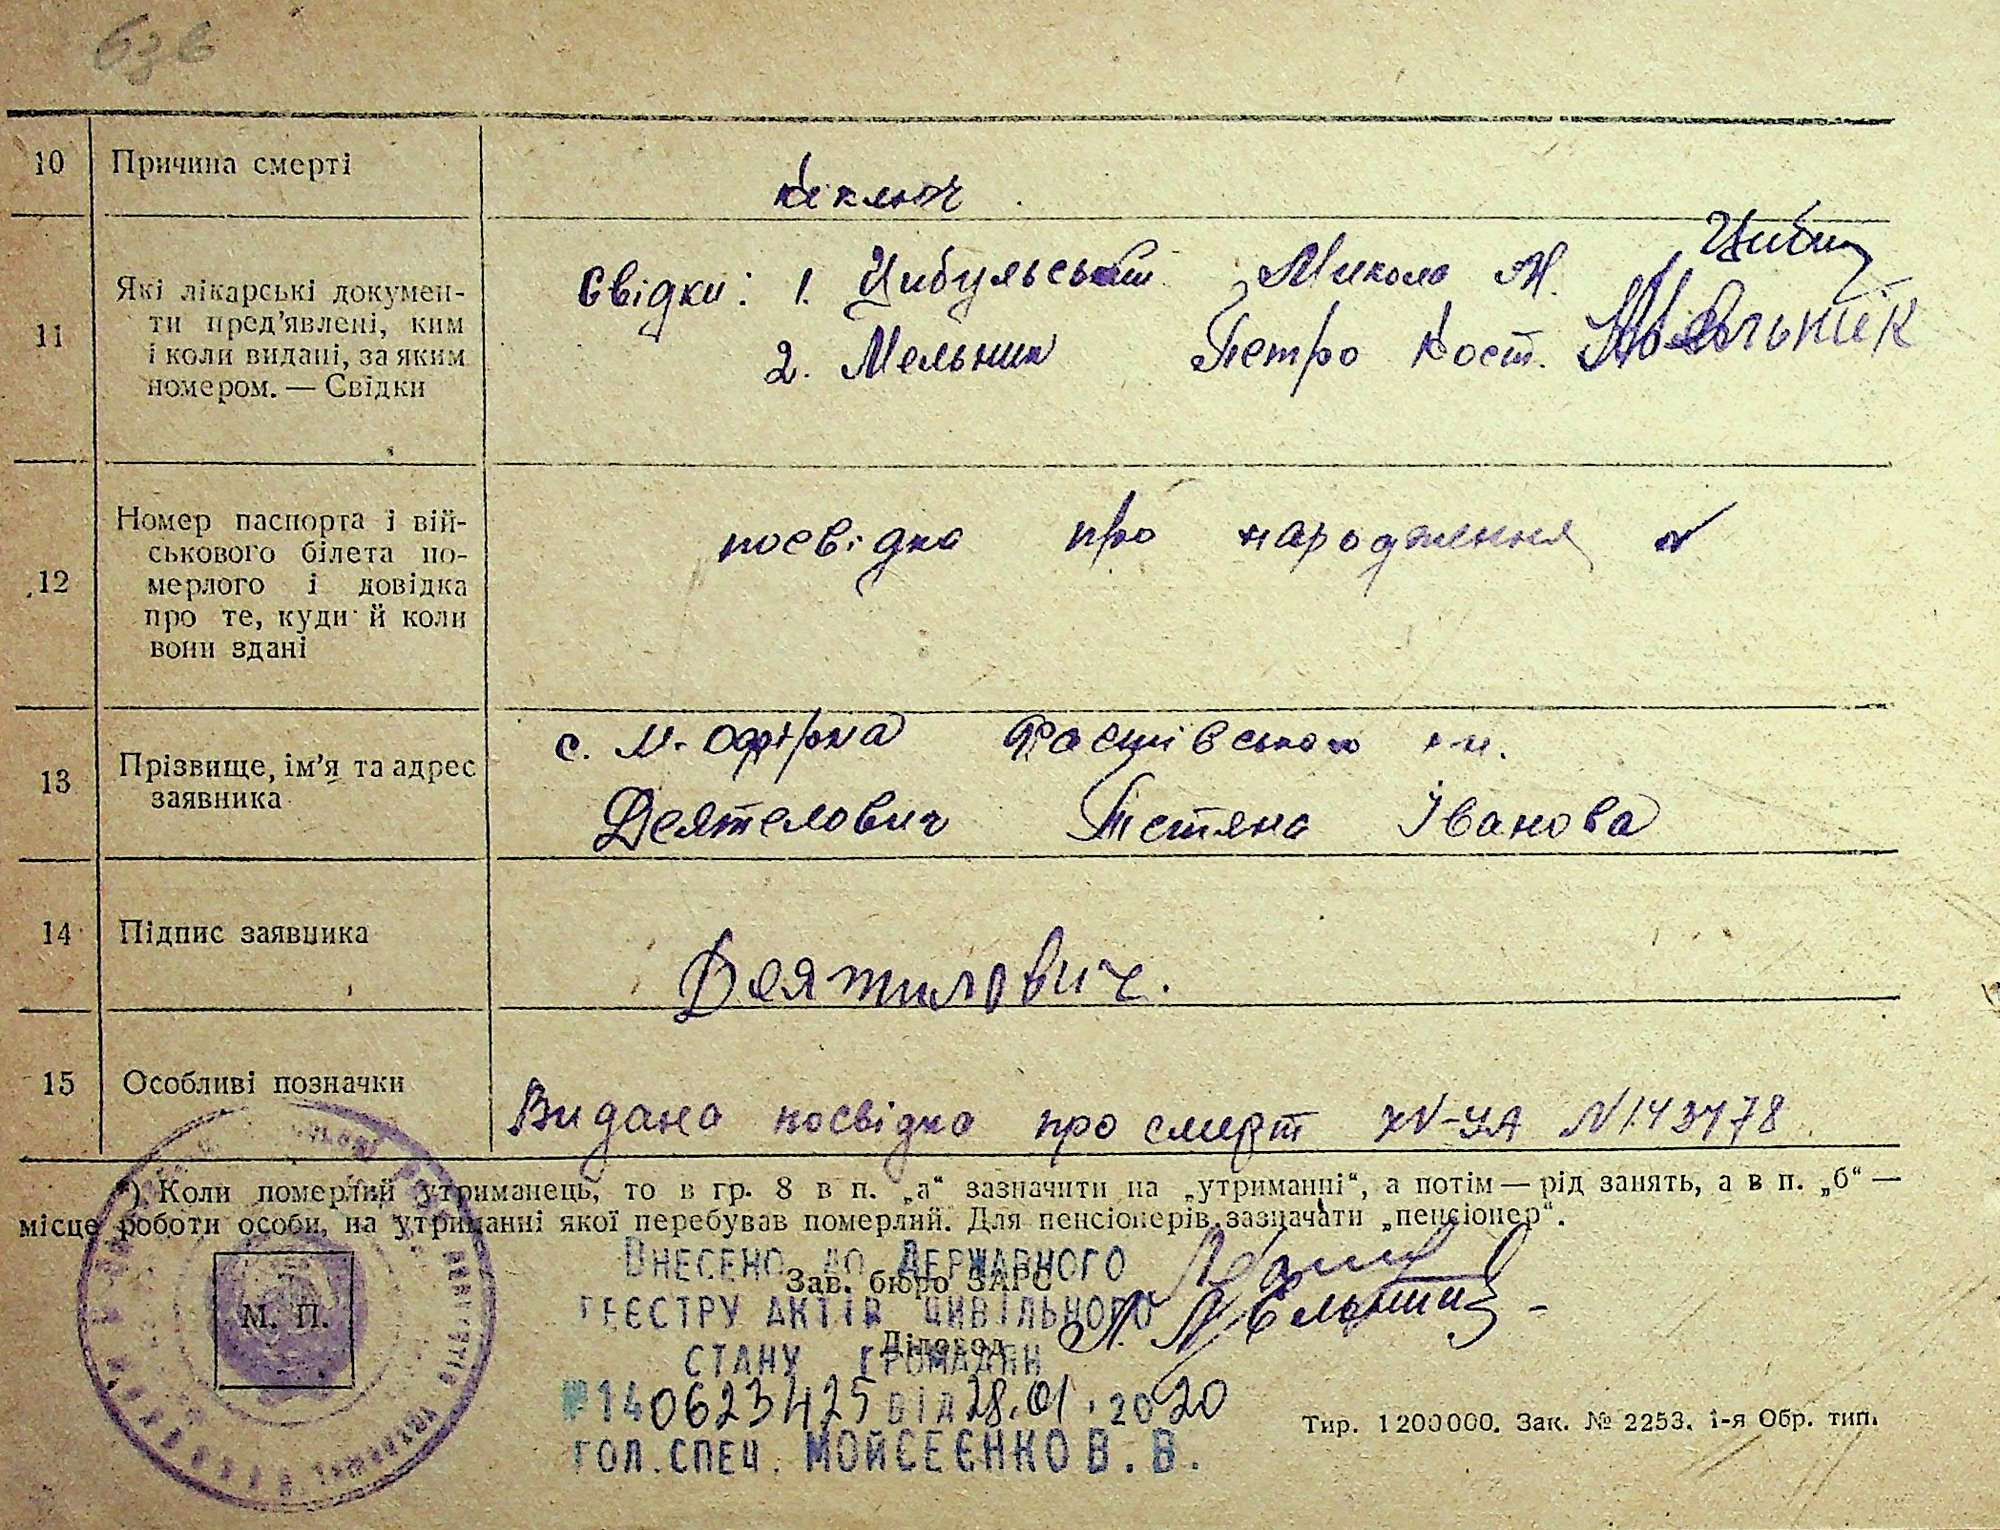 636
10 Причина смерті
коклюш
11 Які лікарські докумен-
ти пред'явлені, ким
і коли видані, за яким
номером. — Свідки
Свідки: 1. Цибульський Микола М. Циб
2. Мельник Петро Кост. Мельник
12 Номер паспорта і вій-
ськового білета по-
мерлого і довідка
про те, куди й коли
вони здані
посвідка про народження
13 Прізвище, ім'я та адрес
заявника
с. М-Офірна Фастівського р-н.
Деятелович Тетяна Іванова
14 Підпис заявника
Деятилович.
15 Особливі позначки
Видана посвідка про смерт XV-УА N143478
*) Коли померлий утриманець, то в гр. 8 в п. „а“ зазначити на „утриманні“, а потім — рід занять, а в п. „б“ —
місце роботи особи, на утриманні якої перебував померлий. Для пенсіонерів зазначати „пенсіонер“.
Внесено до Державного
Зав. бюро ЗАГС
реєстру актів цивільного
Діловод
стану громадян
М. П.
№140623425 від 28.01.2020
гол. спец. Мойсеєнко В. В.
Тир. 1200000. Зак. № 2253. 1-я Обр. тип.